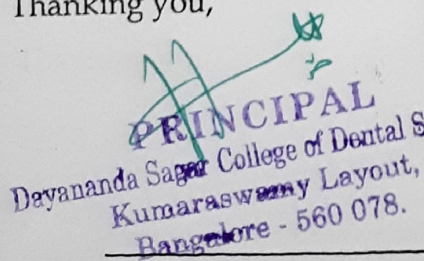 Thanking you,
PRINCIPAL
Dayananda Sagar College of Dental S
Kumaraswamy Layout,
Bangalore - 560 078.